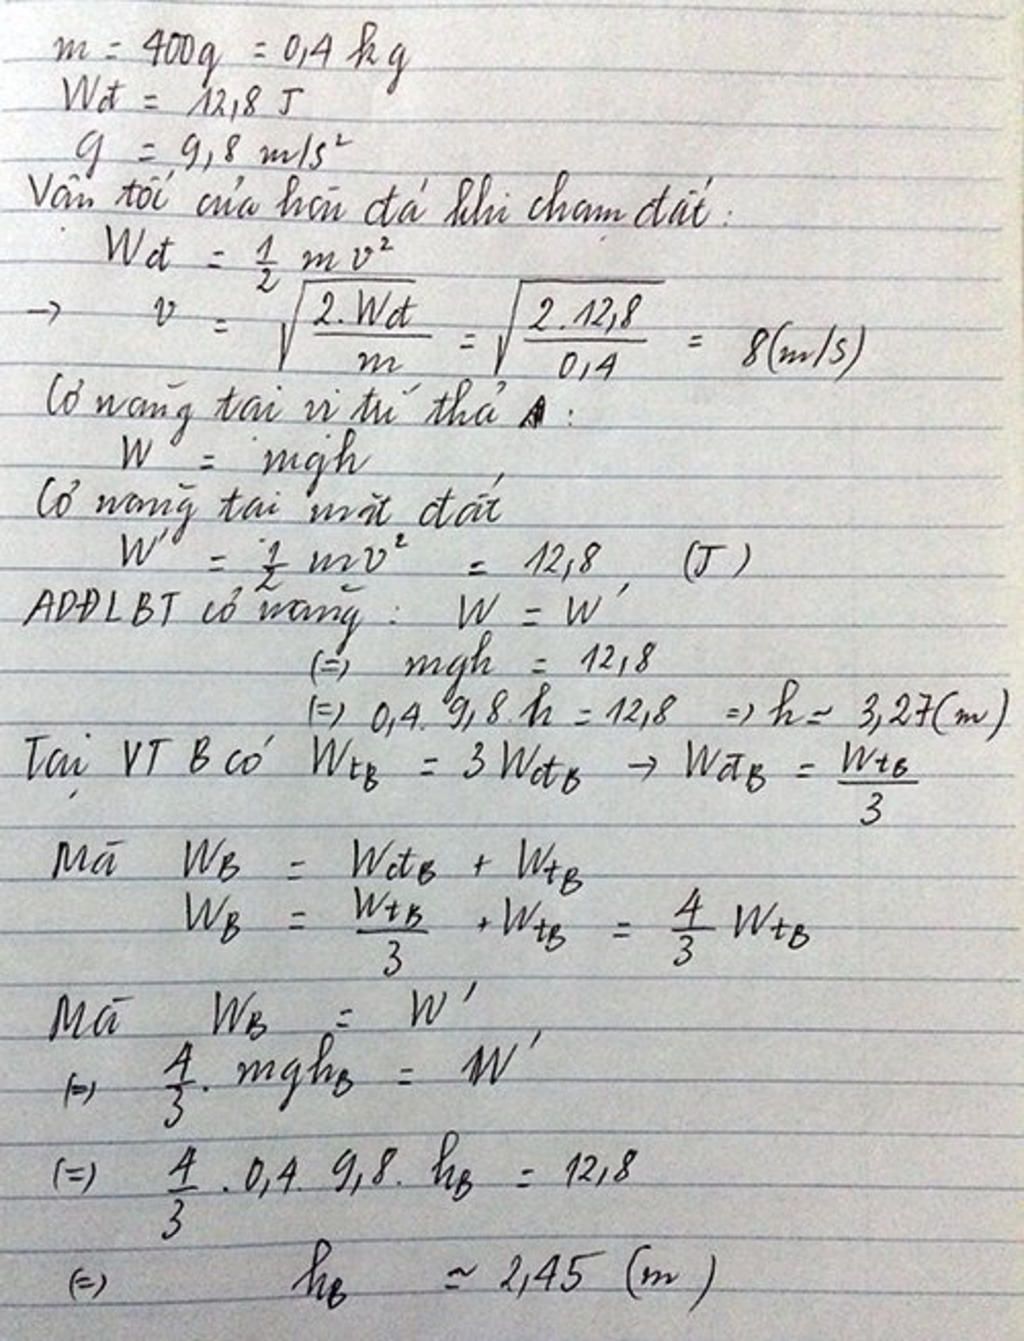 m = 400g = 0,4 kg
Wđ = 12,8 J
g = 9,8 m/s²
Vận tốc của hòn đá khi chạm đất:
Wđ = 1/2 mv²
→ v = √(2.Wđ/m) = √(2.12,8/0,4) = 8(m/s)
Cơ năng tại vị trí thả A:
W = mgh
Cơ năng tại mặt đất
W' = 1/2 mv² = 12,8 (J)
ADĐLBT cơ năng: W = W'
(=) mgh = 12,8
(=) 0,4. 9,8.h = 12,8 => h ≃ 3,27(m)
Tại VT B có WtB = 3WđB → WđB = WtB/3
Mà WB = WđB + WtB
WB = WtB/3 + WtB = 4/3 WtB
Mà WB = W'
(=) 4/3. mghB = W'
(=) 4/3 . 0,4. 9,8. hB = 12,8
(=) hB ≃ 2,45 (m)